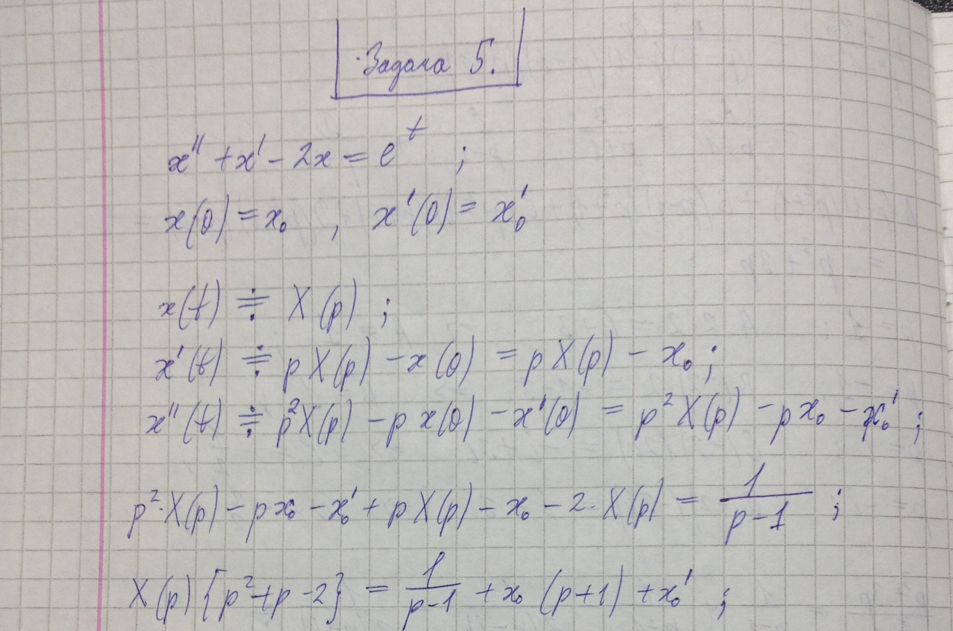 Задача 5.
x'' + x' - 2x = e^t ;
x(0) = x₀ , x'(0) = x₀'
x(t) ≑ X(p) ;
x'(t) ≑ pX(p) - x(0) = pX(p) - x₀ ;
x''(t) ≑ p²X(p) - p x(0) - x'(0) = p² X(p) - px₀ - x₀' ;
p²·X(p) - px₀ - x₀' + pX(p) - x₀ - 2·X(p) = 1/(p-1) ;
X(p) {p²+p-2} = 1/(p-1) + x₀ (p+1) + x₀' ;